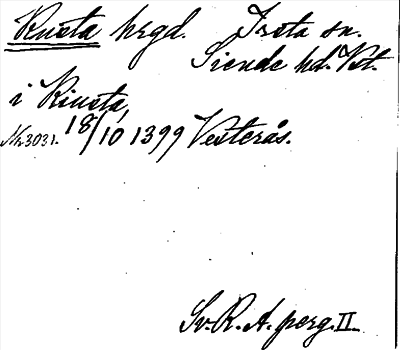 Rusta hrgd. Irsta sn.
Siende hd. Vst.
i Riusta,
Nr 3031. 18/10 1399 Vesterås.
Sv. R. A. perg. II